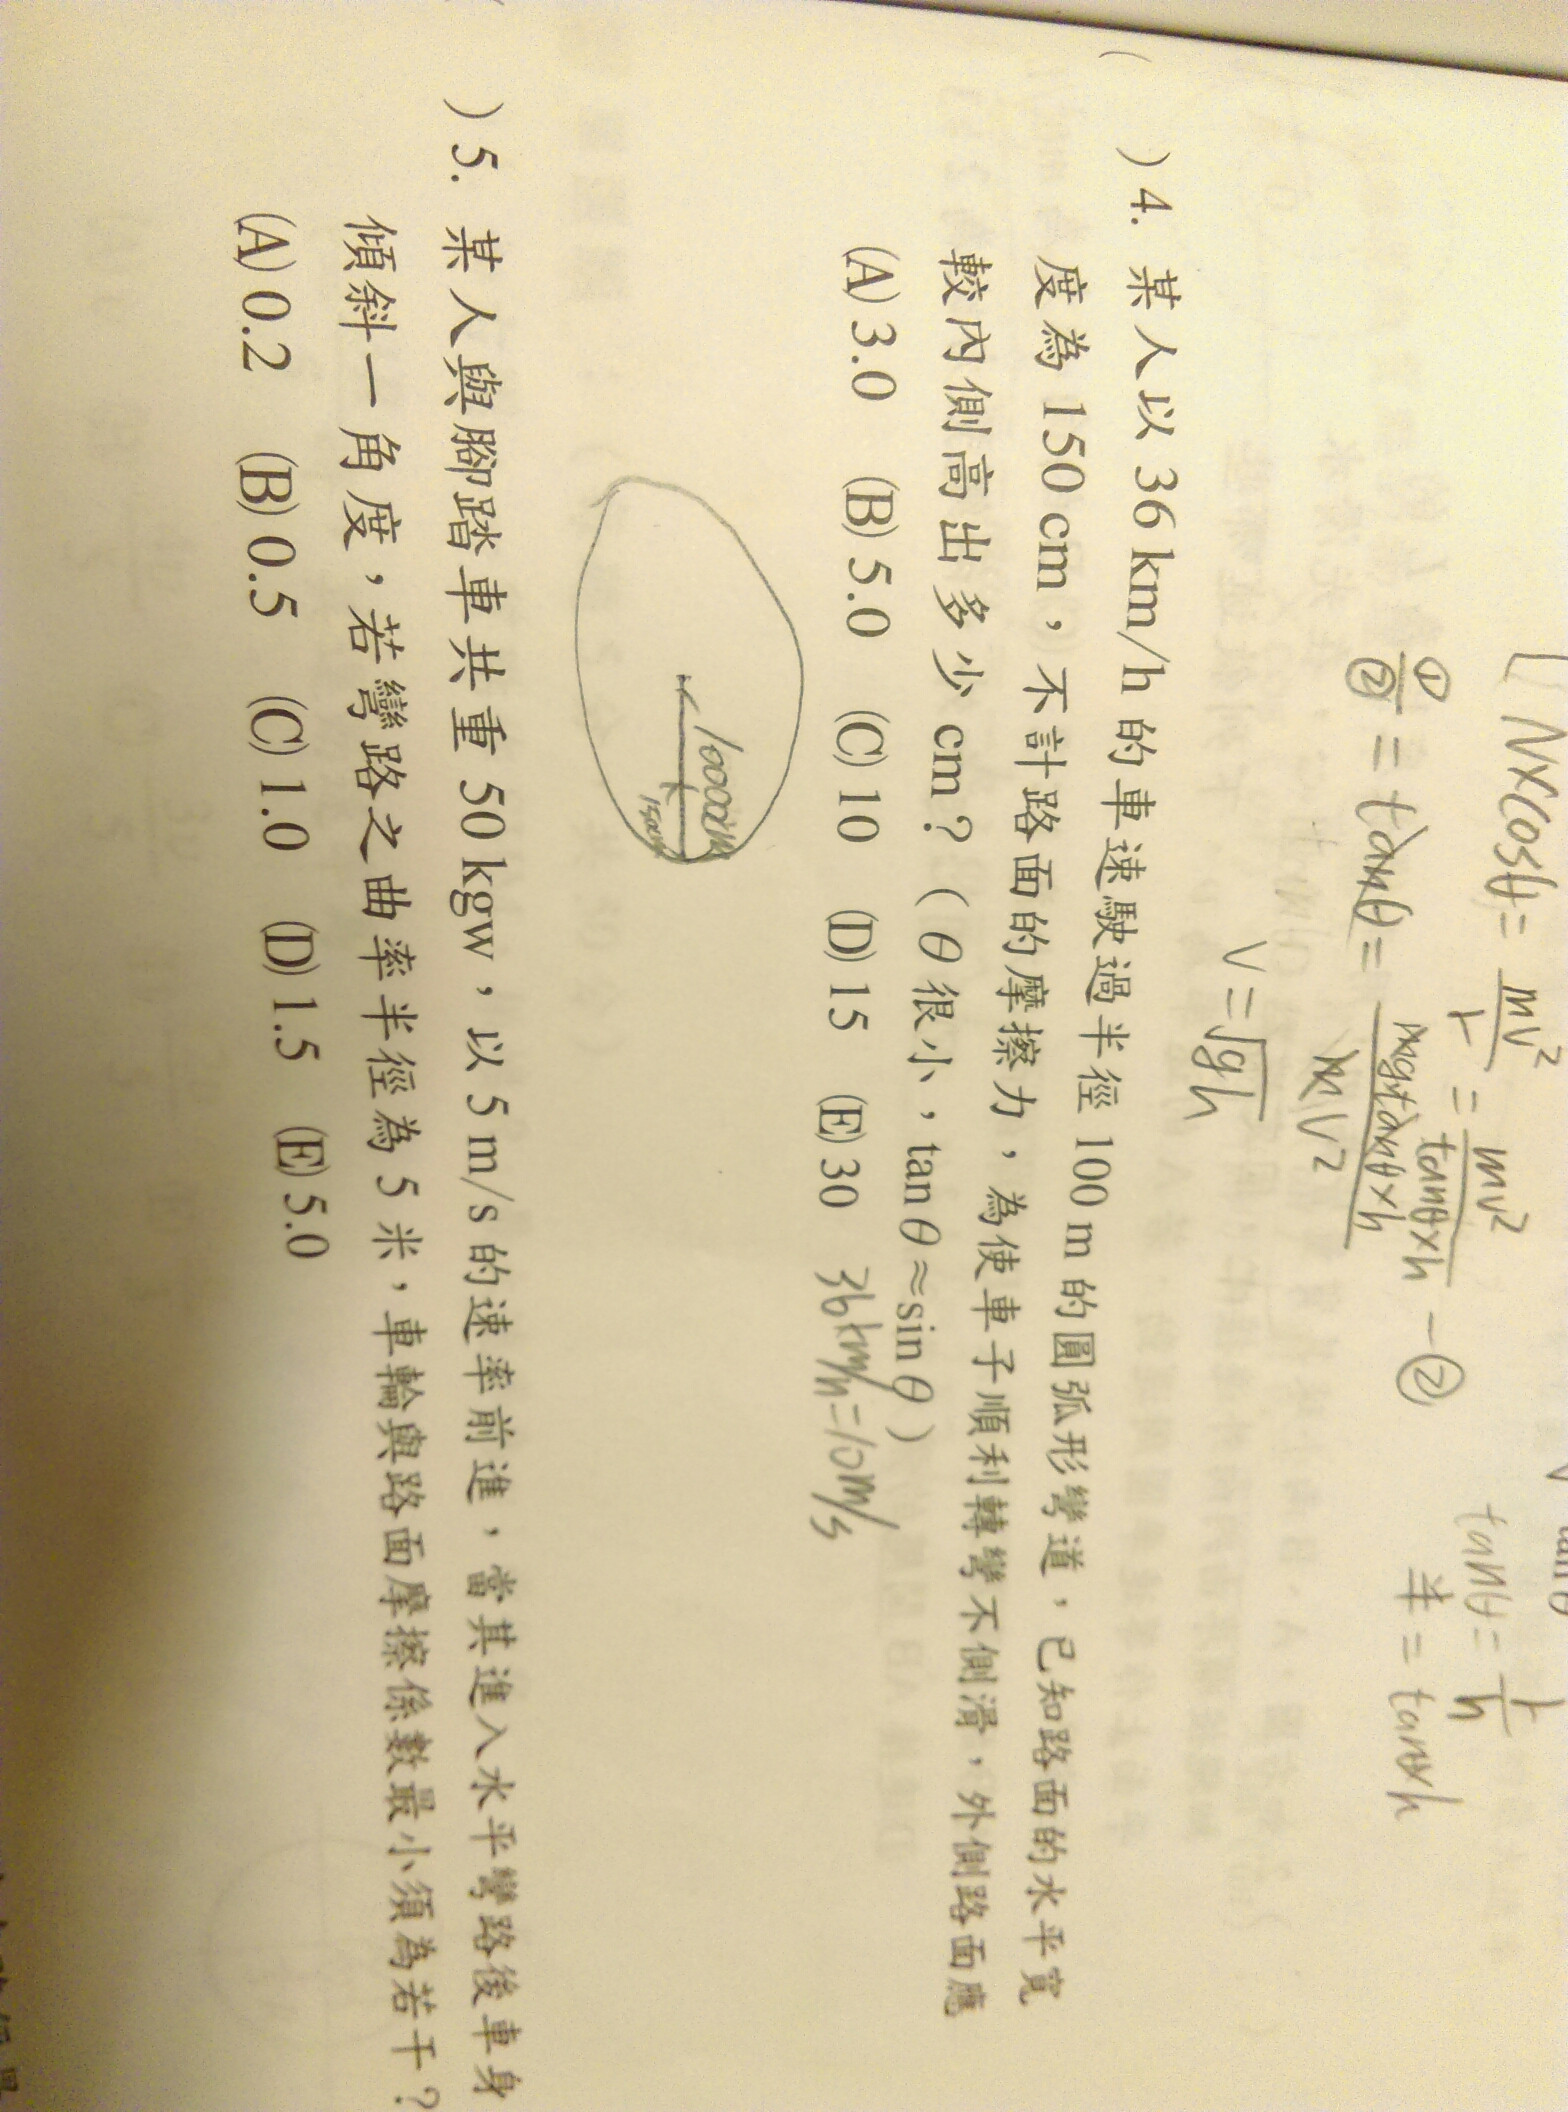 N×cosθ = mv²/r = mv²/tanθ×h －②
①/② = tanθ = mgtanθ×h/mv²
v = √gh
tanθ = r/h
r = tanθ×h
) 4. 某人以 36 km/h 的車速駛過半徑 100 m 的圓弧形彎道，已知路面的水平寬
度為 150 cm，不計路面的摩擦力，為使車子順利轉彎不側滑，外側路面應
較內側高出多少 cm？（θ 很小，tan θ≈sin θ）
(A) 3.0 (B) 5.0 (C) 10 (D) 15 (E) 30
36km/h=10m/s
10000cm
150cm
) 5. 某人與腳踏車共重 50 kgw，以 5 m/s 的速率前進，當其進入水平彎路後車身
傾斜一角度，若彎路之曲率半徑為 5 米，車輪與路面摩擦係數最小須為若干？
(A) 0.2 (B) 0.5 (C) 1.0 (D) 1.5 (E) 5.0